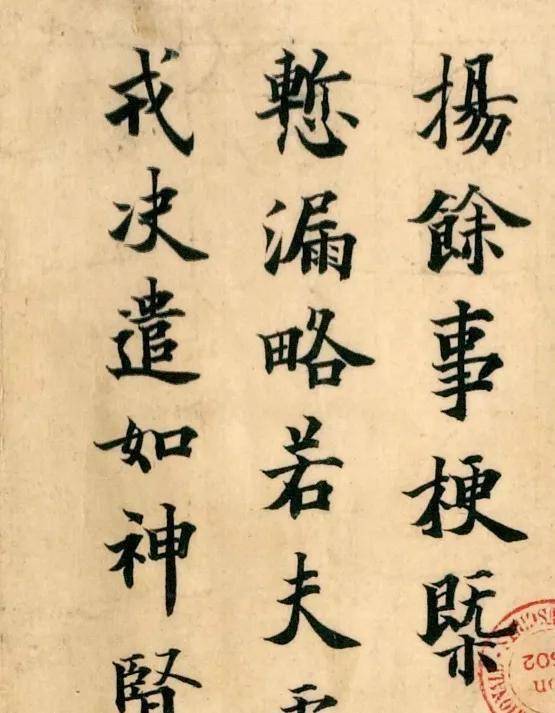 揚餘事梗槩
慙漏略若夫
戎决遣如神賢